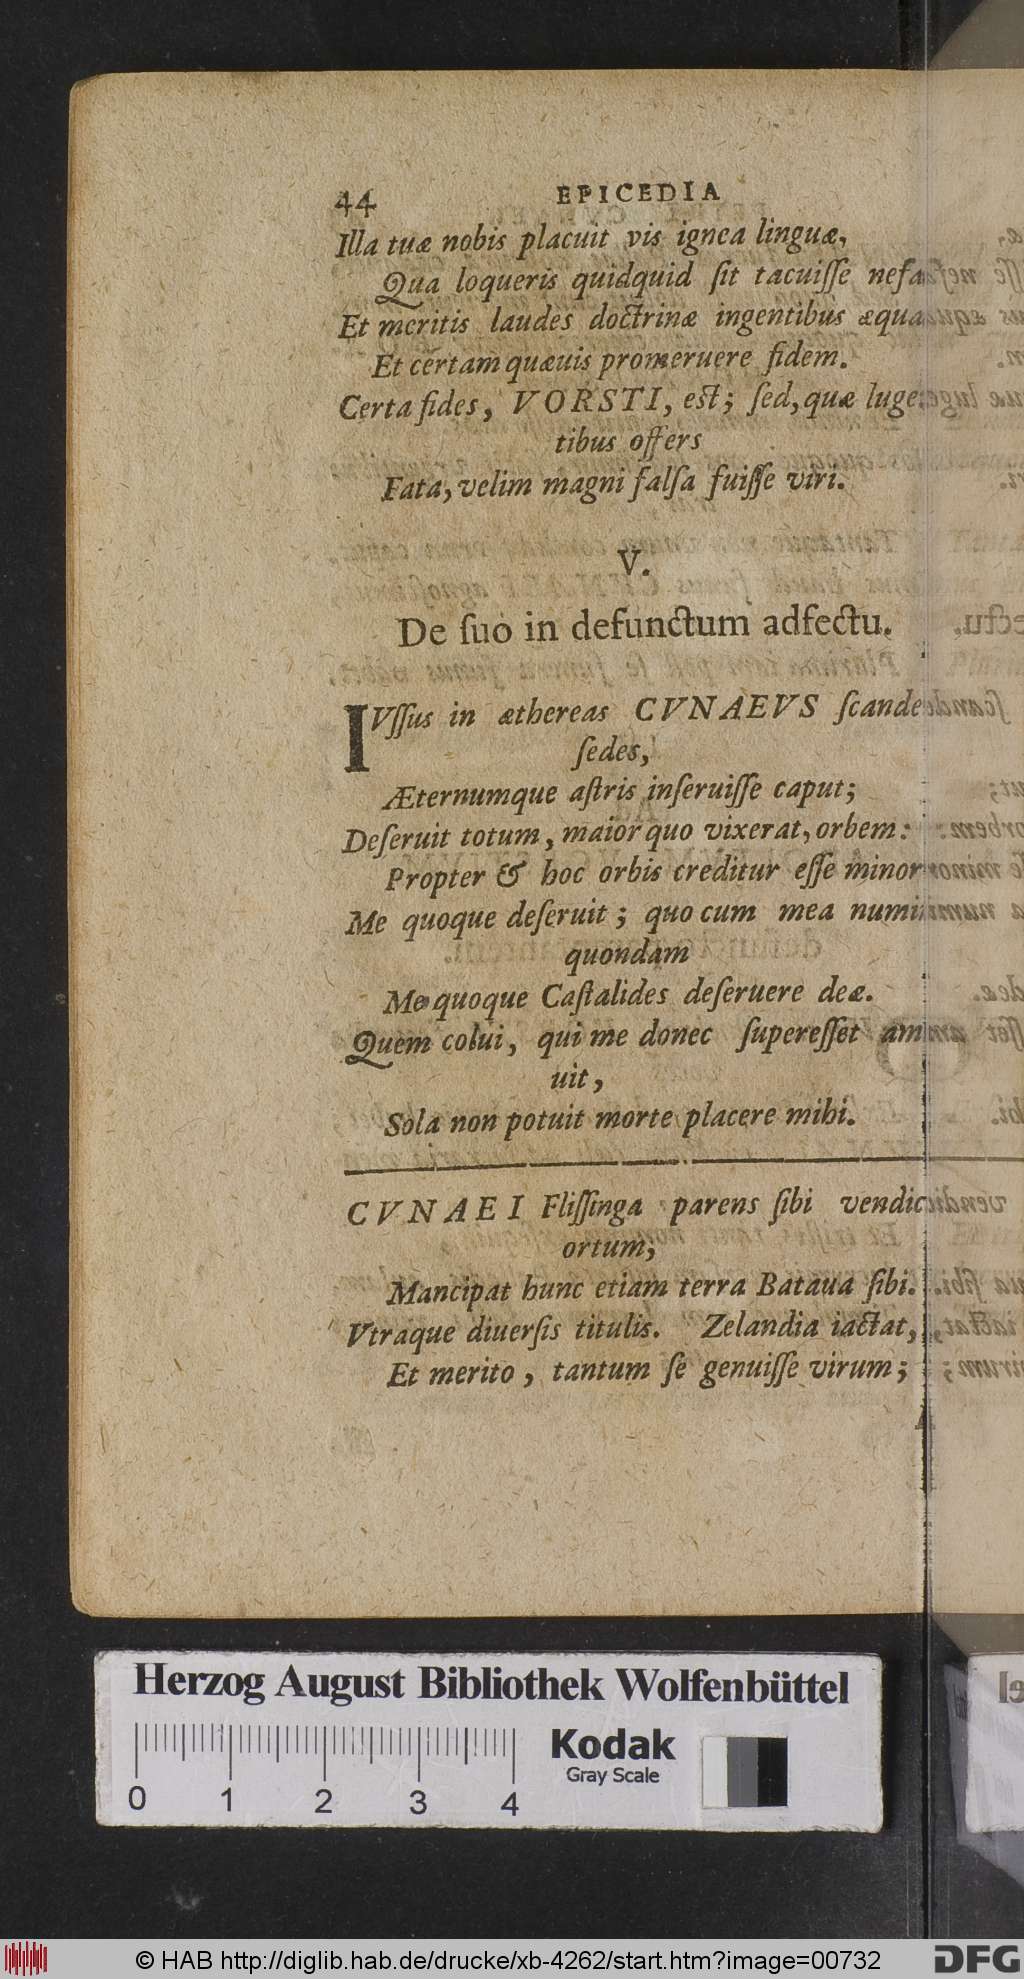 44 EPICEDIA
Illa tuæ nobis placuit vis ignea linguæ,
Qua loqueris quidquid ſit tacuiſſe nefa
Et meritis laudes doctrinæ ingentibus æqua
Et certam quæuis promeruere fidem.
Certa fides, VORSTI, eſt; ſed, quæ luge
tibus offers
Fata, velim magni falſa fuiſſe viri.
V.
De ſuo in defunctum adfectu.
IVſſus in æthereas CVNAEVS ſcande
ſedes,
Æternumque aſtris inſeruiſſe caput;
Deſeruit totum, maior quo vixerat, orbem:
Propter & hoc orbis creditur eſſe minor
Me quoque deſeruit; quo cum mea numi
quondam
Me quoque Caſtalides deſeruere deæ.
Quem colui, qui me donec ſupereſſet am
uit,
Sola non potuit morte placere mihi.
CVNAEI Fliſſinga parens ſibi vendic
ortum;
Mancipat hunc etiam terra Bataua ſibi.
Vtraque diuerſis titulis. Zelandia iactat,
Et merito, tantum ſe genuiſſe virum;
Herzog August Bibliothek Wolfenbüttel
0 1 2 3 4
Kodak
Gray Scale
© HAB http://diglib.hab.de/drucke/xb-4262/start.htm?image=00732
DFG